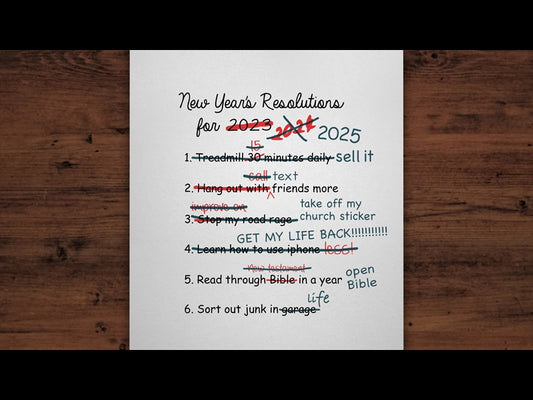 New Year's Resolutions
for 2023 2024 2025
15
1. Treadmill 30 minutes daily sell it
call text
2. Hang out with friends more
improve on take off my
3. Stop my road rage church sticker
GET MY LIFE BACK!!!!!!!!!!!
4. Learn how to use iphone less!
New testament open
5. Read through Bible in a year Bible
life
6. Sort out junk in garage